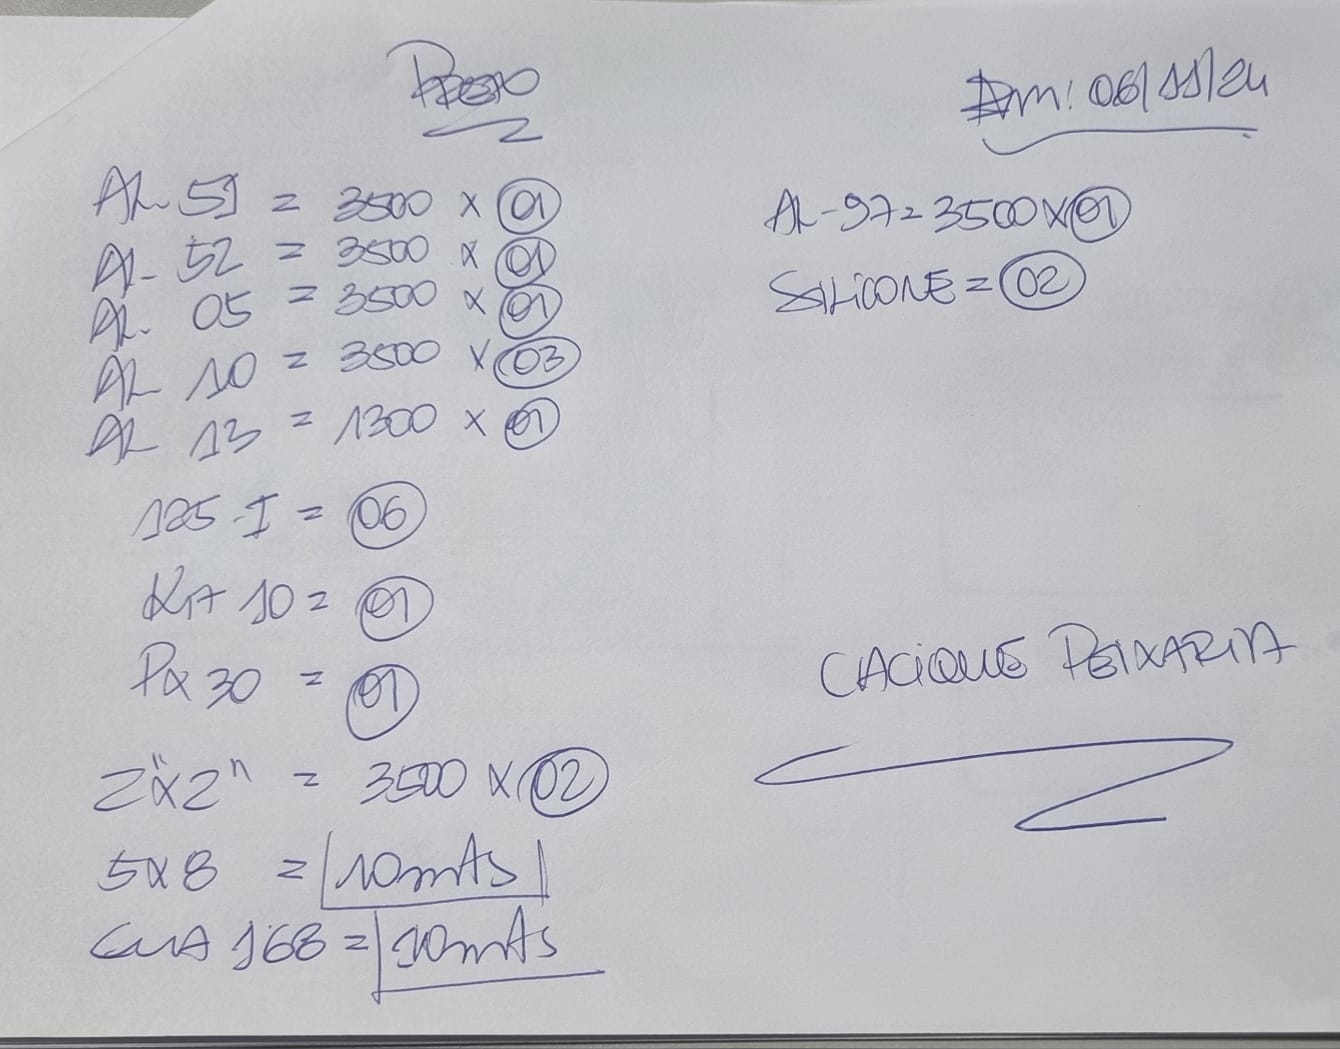 PRETO
Am: 06/11/24
AL 51 = 3500 x 01
AL-97 = 3500 x 01
AL- 52 = 3500 x 01
SILICONE = 02
AL. 05 = 3500 x 01
AL 10 = 3500 x 03
AL 13 = 1300 x 01
125-I = 06
Kit 10 = 01
Px 30 = 01
CACIQUE PEIXARIA
2"x2" = 3500 x 02
5x8 = 10mts
GUA 168 = 10mts